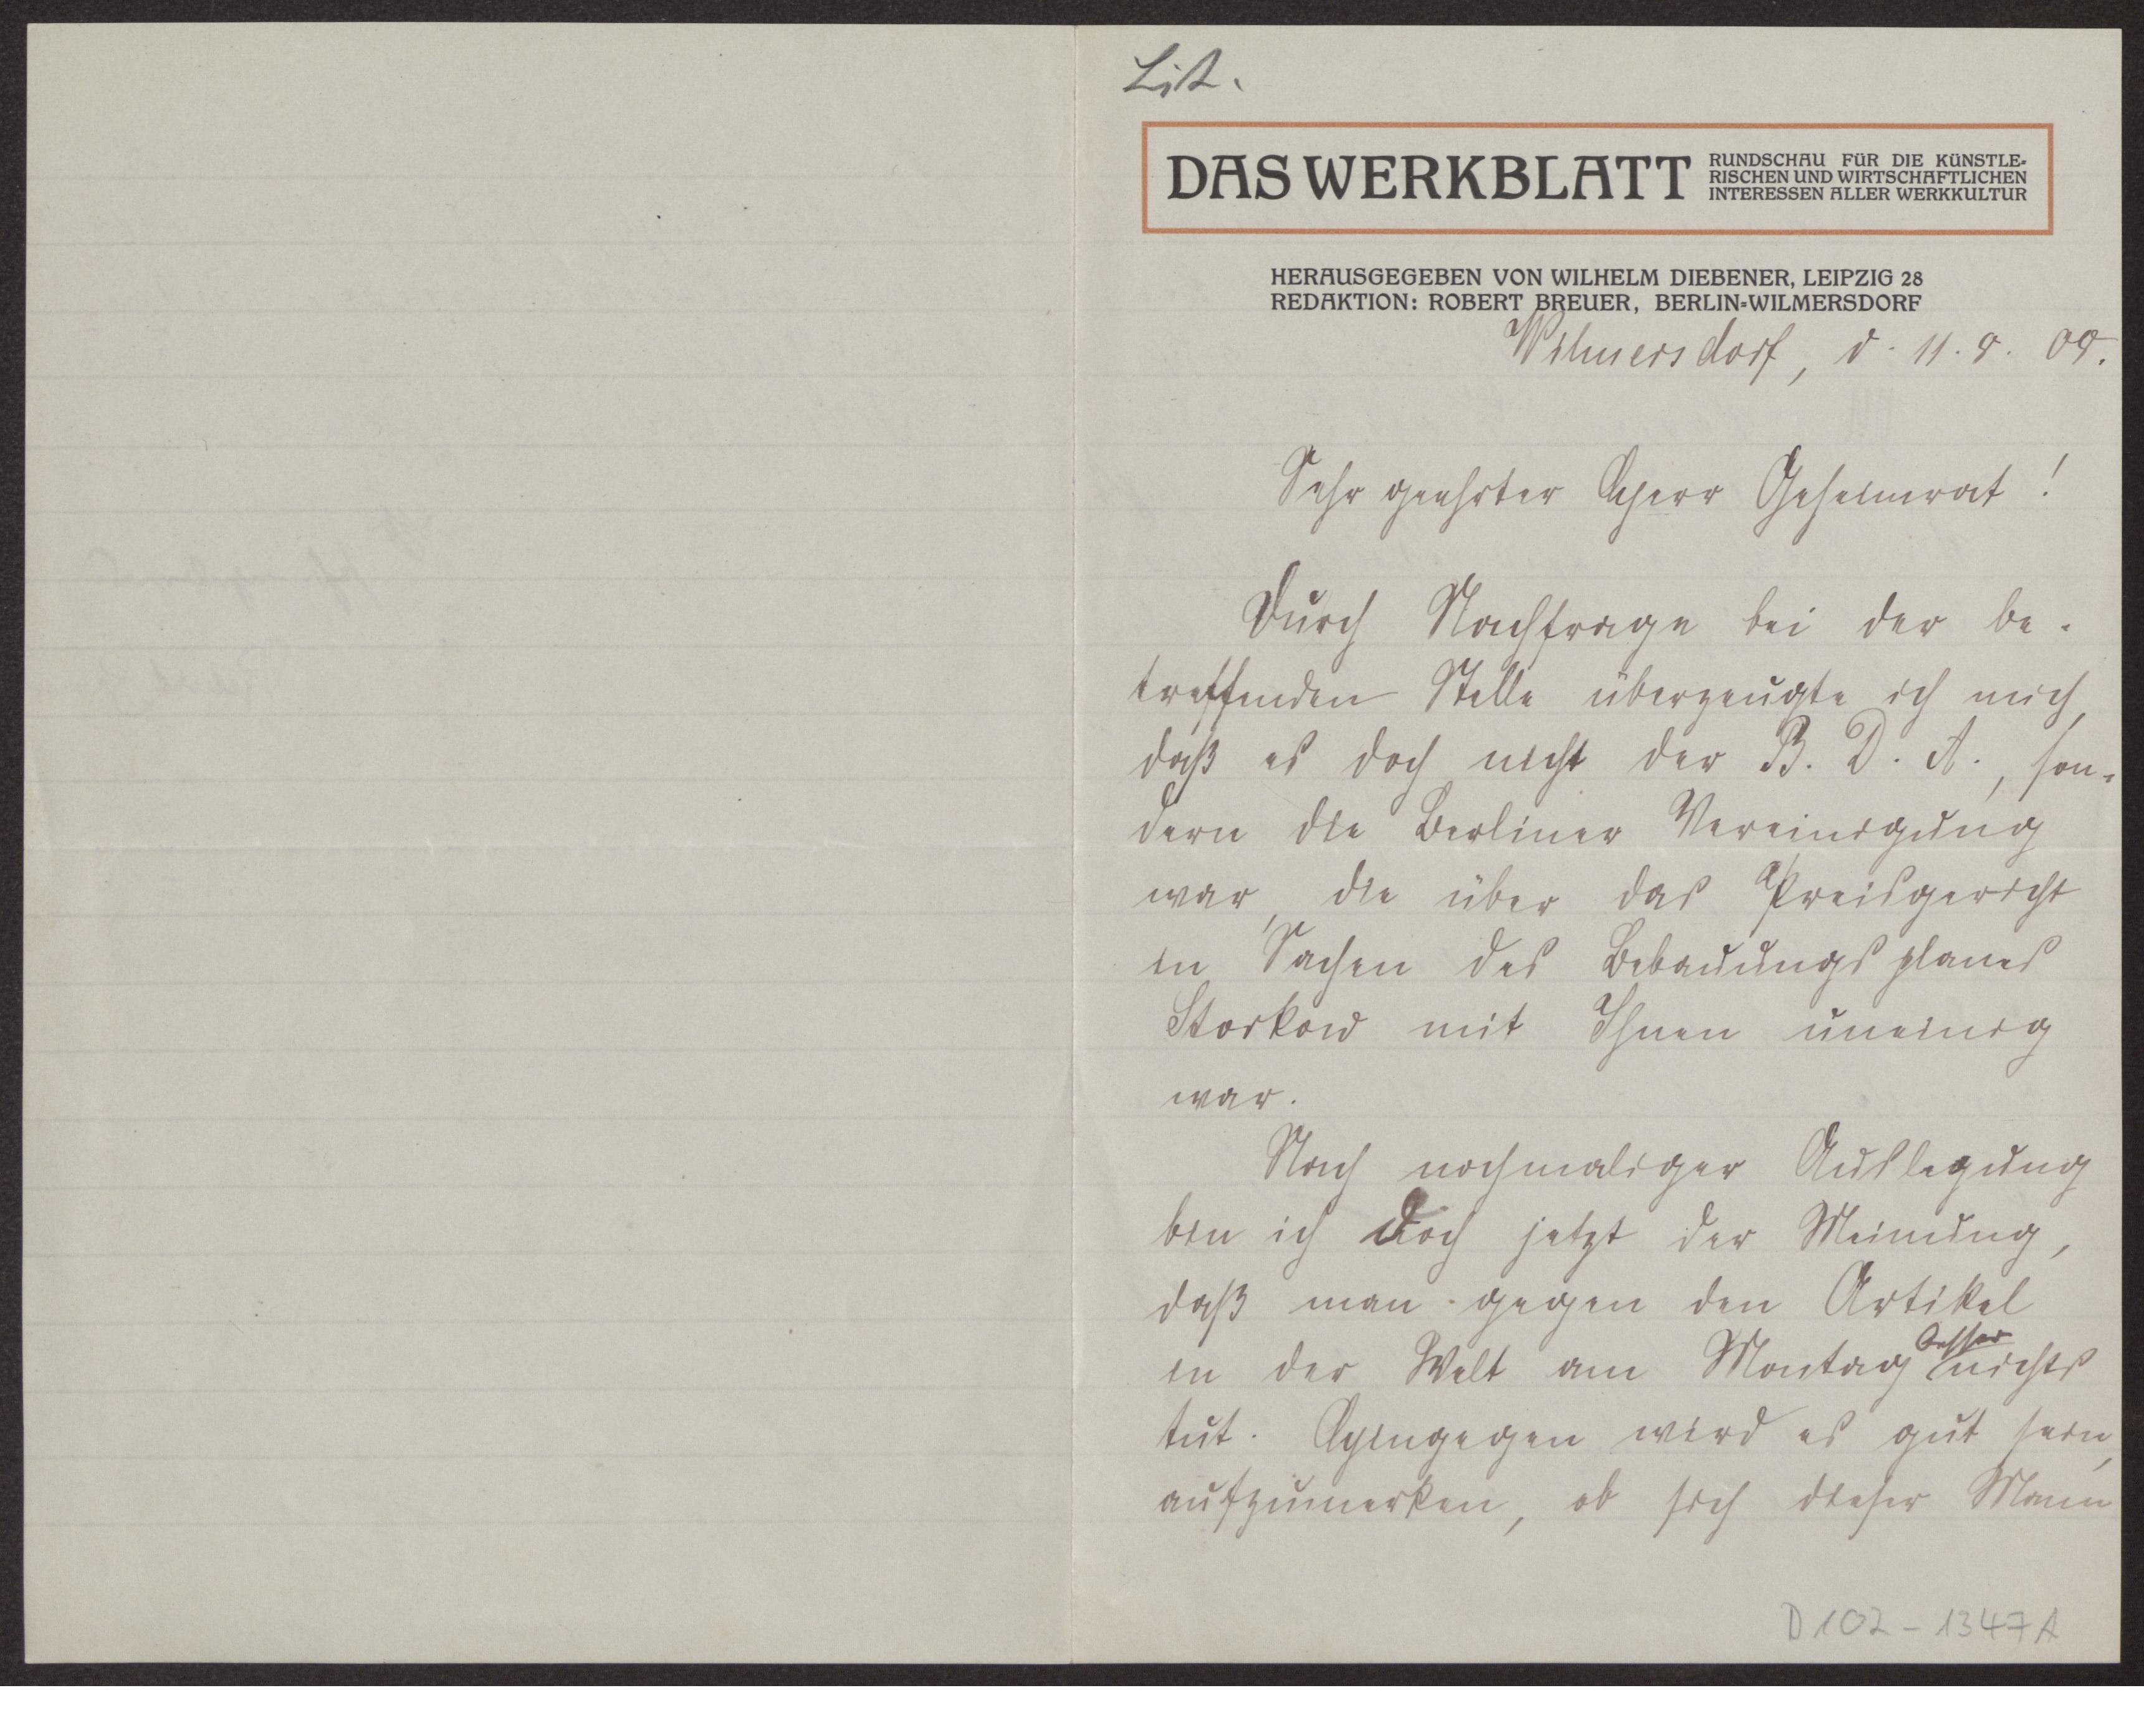 Lit.
DAS WERKBLATT
RUNDSCHAU FÜR DIE KÜNSTLE-
RISCHEN UND WIRTSCHAFTLICHEN
INTERESSEN ALLER WERKKULTUR
HERAUSGEGEBEN VON WILHELM DIEBENER, LEIPZIG 28
REDAKTION: ROBERT BREUER, BERLIN-WILMERSDORF
Wilmersdorf, d. 11. 9. 09.
Sehr geehrter Herr Geheimrat!
Durch Nachfrage bei der be-
treffenden Stelle überzeugte ich mich,
daß es doch nicht der B. D. A., son-
dern die Berliner Vereinigung
war, die über das Preisgericht
in Sachen des Bebauungsplanes
Storkow mit Ihnen uneinig
war.
Nach nochmaliger Auslegung
bin ich doch jetzt der Meinung,
daß man gegen den Artikel
in der Welt am Montag besser nichts
tut. Hingegen wird es gut sein,
aufzumerken, ob sich dieser Mann
D 102 - 1347 A